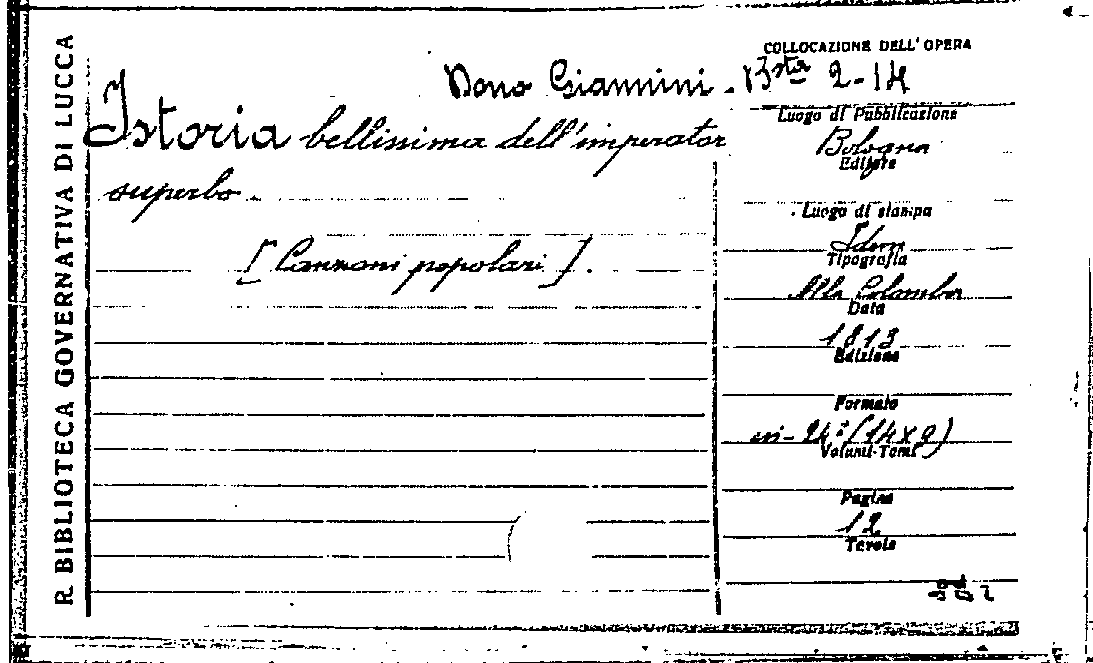 R. BIBLIOTECA GOVERNATIVA DI LUCCA
COLLOCAZIONE DELL'OPERA
Dono Giannini. Bsta 2-14
Istoria bellissima dell'imperator
superbo.
[Canzoni popolari].
Luogo di Pubblicazione
Bologna
Editore
Luogo di stampa
Idem
Tipografia
Alla Colomba
Data
1813
Edizione
Formato
in-24º (14x9)
Volumi-Tomi
Pagine
12
Tavole